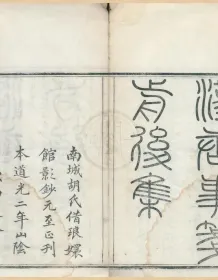 漢唐事箋
前後集
南城胡氏借琅嬛
館影鈔元至正刊
本道光二年山陰